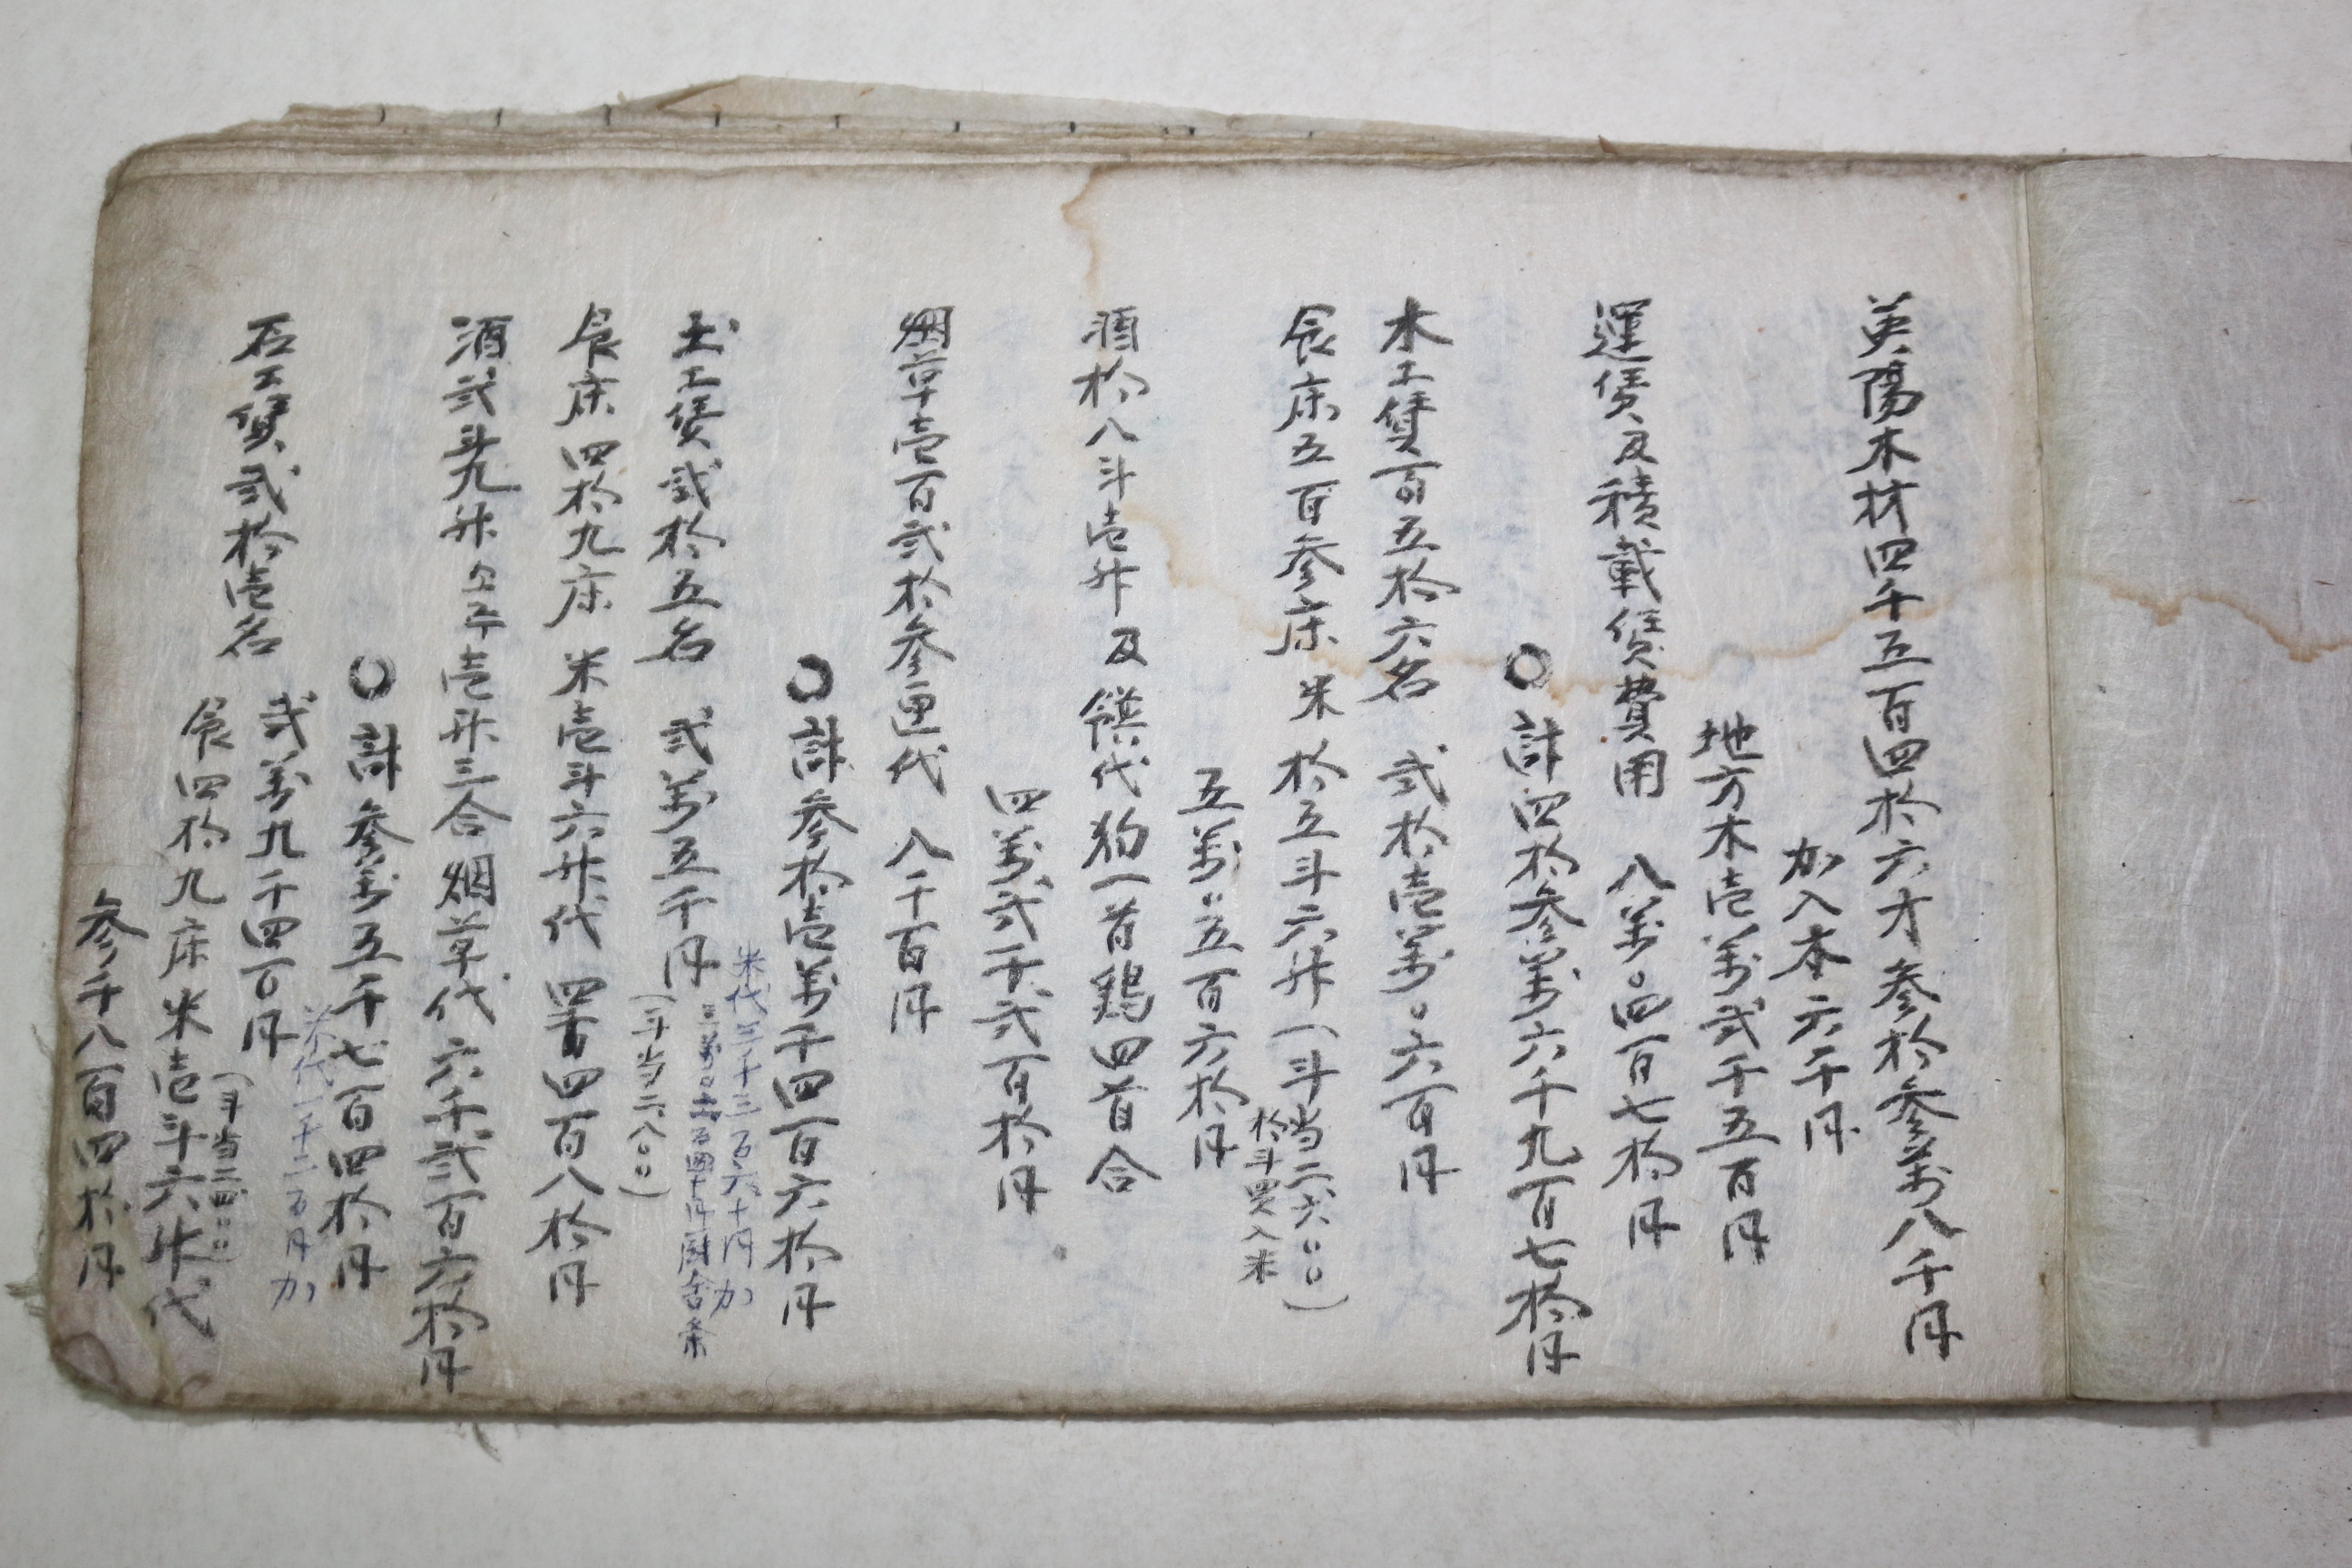 英陽木材四千五百四拾六才 参拾参萬八千円
加入本 六千円
地方木壱萬弍千五百円
運賃及積載賃費用 八萬〇四百七拾円
〇計四拾参萬六千九百七拾円
木工賃百五拾六名 弍拾壱萬〇六百円
食床五百参床 米拾五斗六升(一斗当二六〇〇)
拾斗買入米
五萬〇五百六拾円
酒拾八斗壱升及饌代狗一首鶏四首合
四萬弍千弍百拾円
烟草壱百弍拾参匣代 八千百円
〇計参拾壱萬千四百六拾円
米代三千三百六十円加
土工賃弍拾五名 弍萬五千円
(斗当二八〇〇)
食床四拾九床 米壱斗六升代 四千四百八拾円
酒弍斗九升 壱升三合 烟草代 六千弍百六拾円
〇計参萬五千七百四拾円
石工賃弍拾壱名 弍萬九千四百円
食四拾九床米壱斗六升代
(斗当二四〇〇)
参千八百四拾円